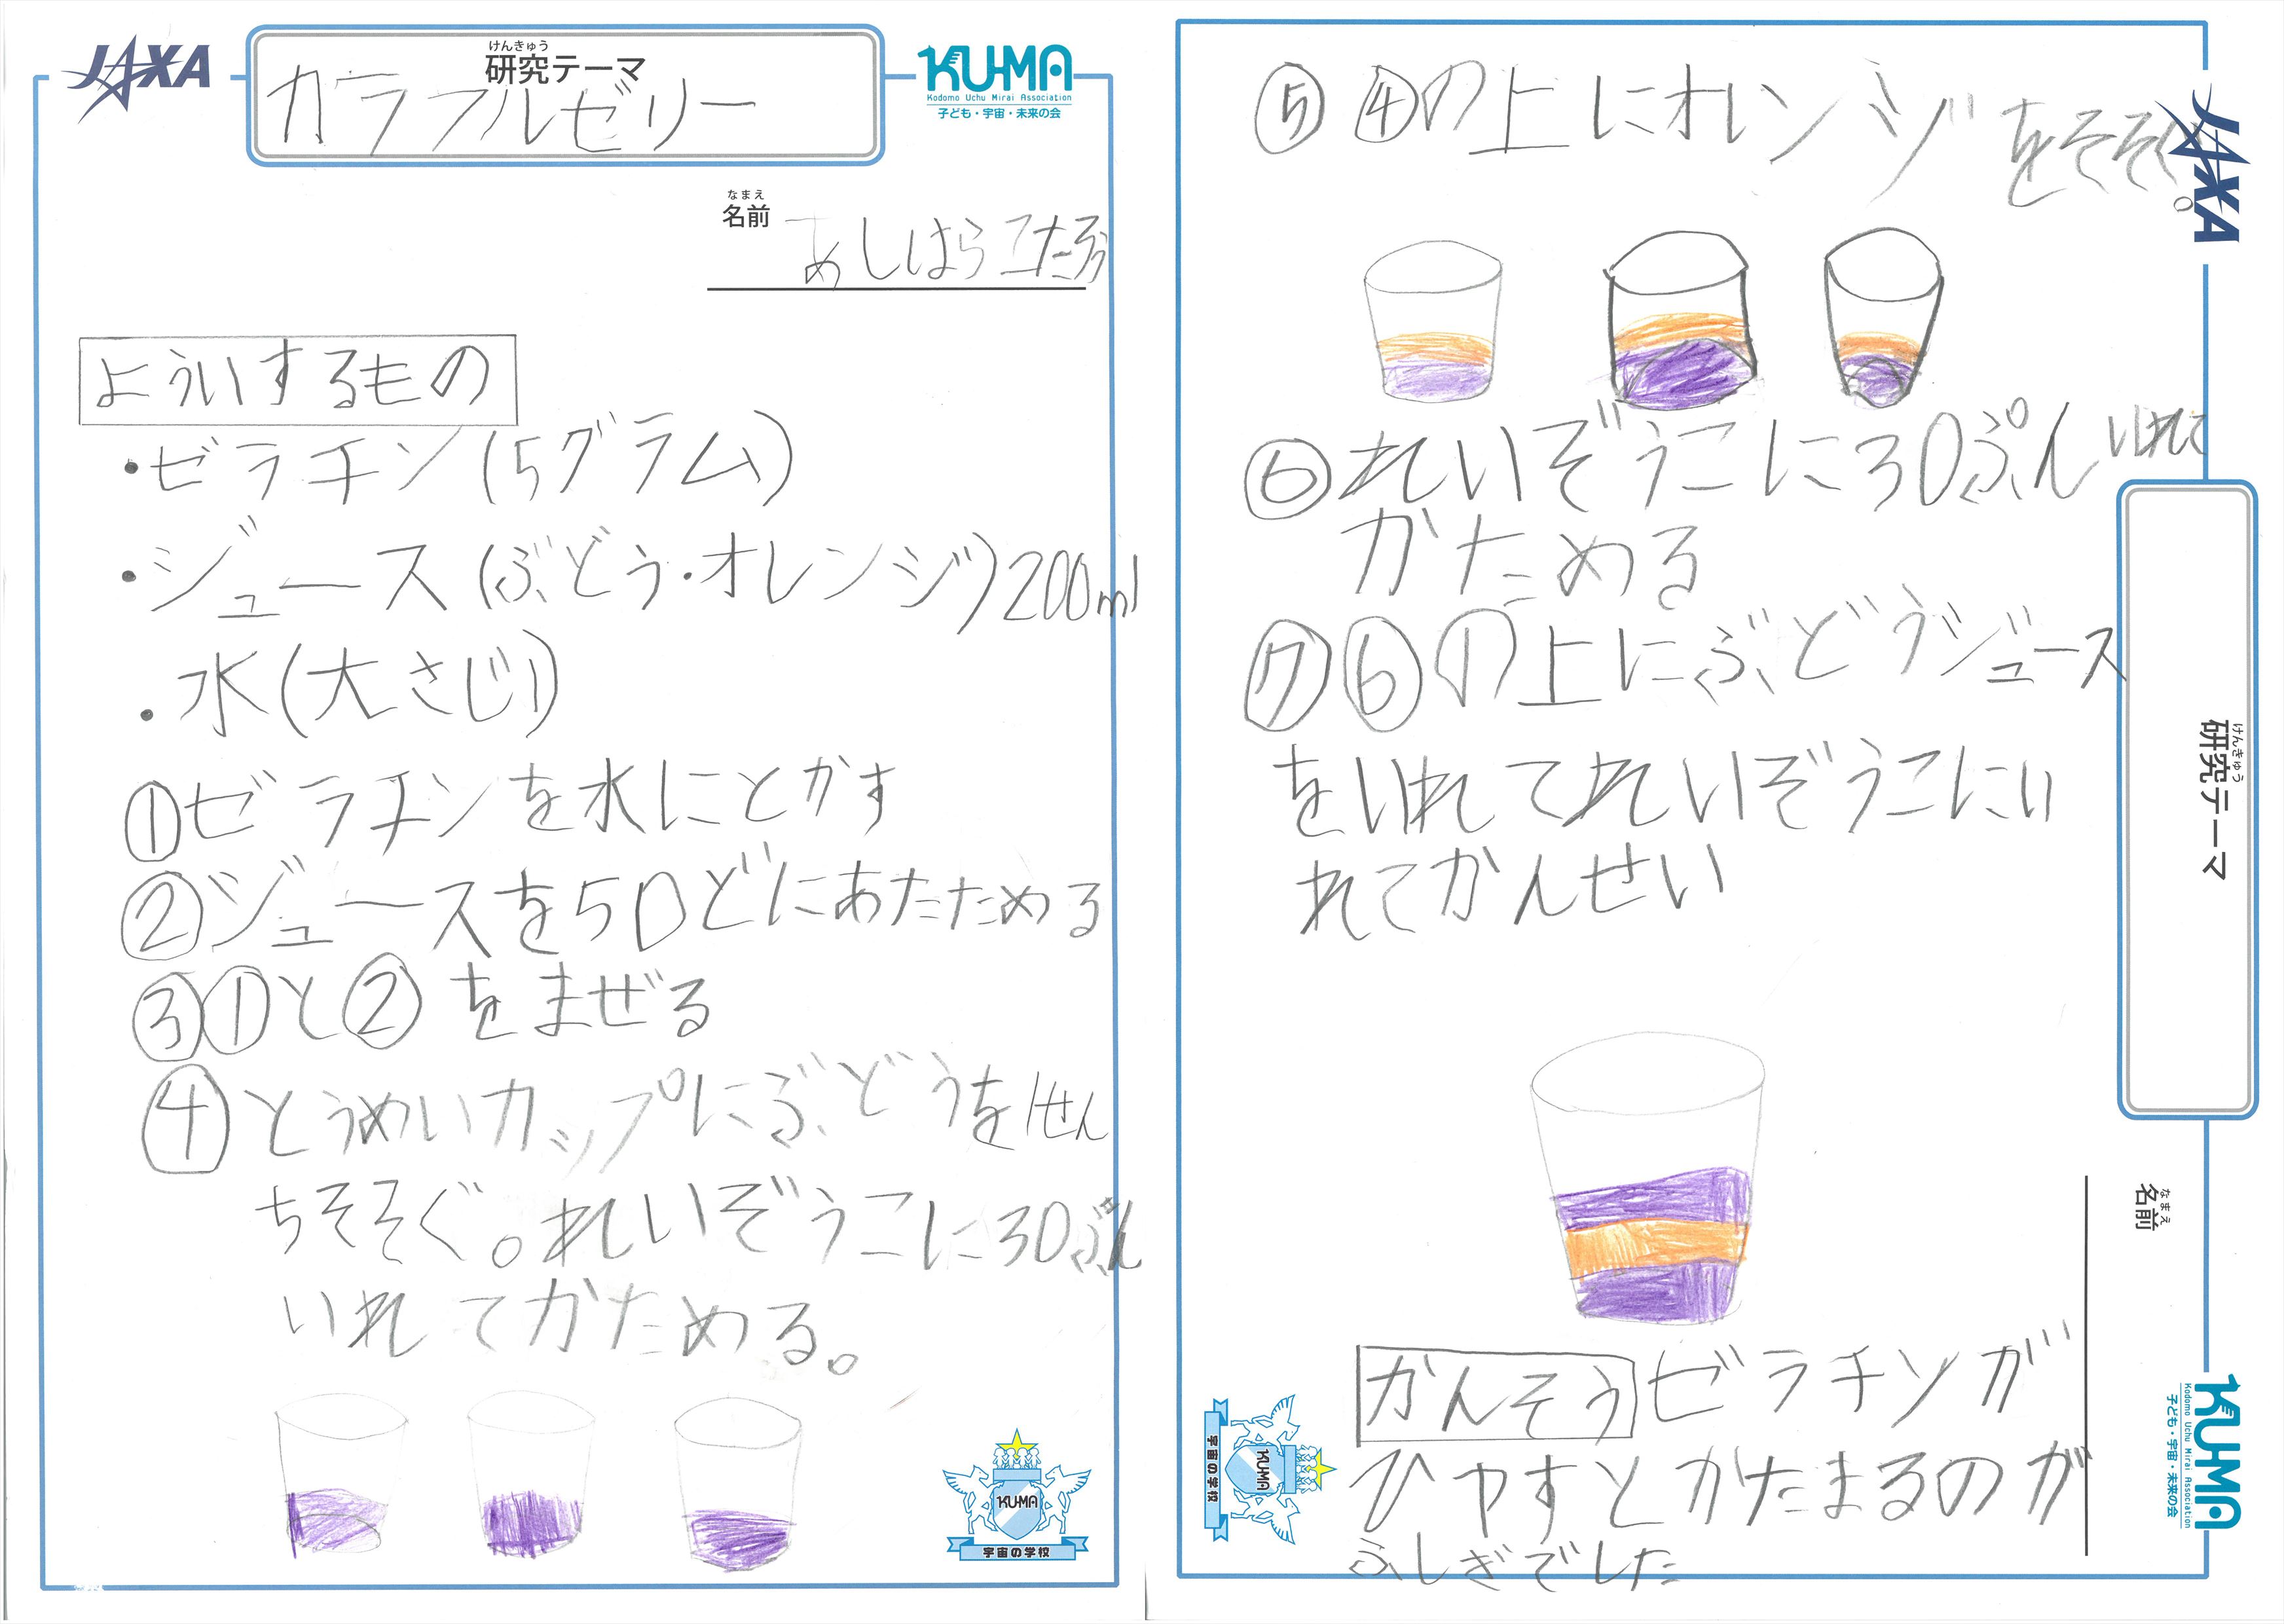 JAXA
けんきゅう
研究テーマ
カラフルゼリー
KU-MA
Kodomo Uchu Mirai Association
子ども・宇宙・未来の会
なまえ
名前
あしはらこたろう
よういするもの
・ゼラチン(5グラム)
・ジュース(ぶどう・オレンジ)200ml
・水(大さじ1)
①ゼラチンを水にとかす
②ジュースを50どにあたためる
③①と②をまぜる
④とうめいカップにぶどうを1せん
ちそそぐ。れいぞうこに30ぷん
いれてかためる。
KU-MA
宇宙の学校
⑤④の上にオレンジをそそぐ。
JAXA
⑥れいぞうこに30ぷんいれて
かためる
⑦⑥の上にぶどうジュース
をいれてれいぞうこにい
れてかんせい
けんきゅう
研究テーマ
なまえ
名前
かんそう ゼラチンが
ひやすとかたまるのが
ふしぎでした
KU-MA
宇宙の学校
KU-MA
Kodomo Uchu Mirai Association
子ども・宇宙・未来の会